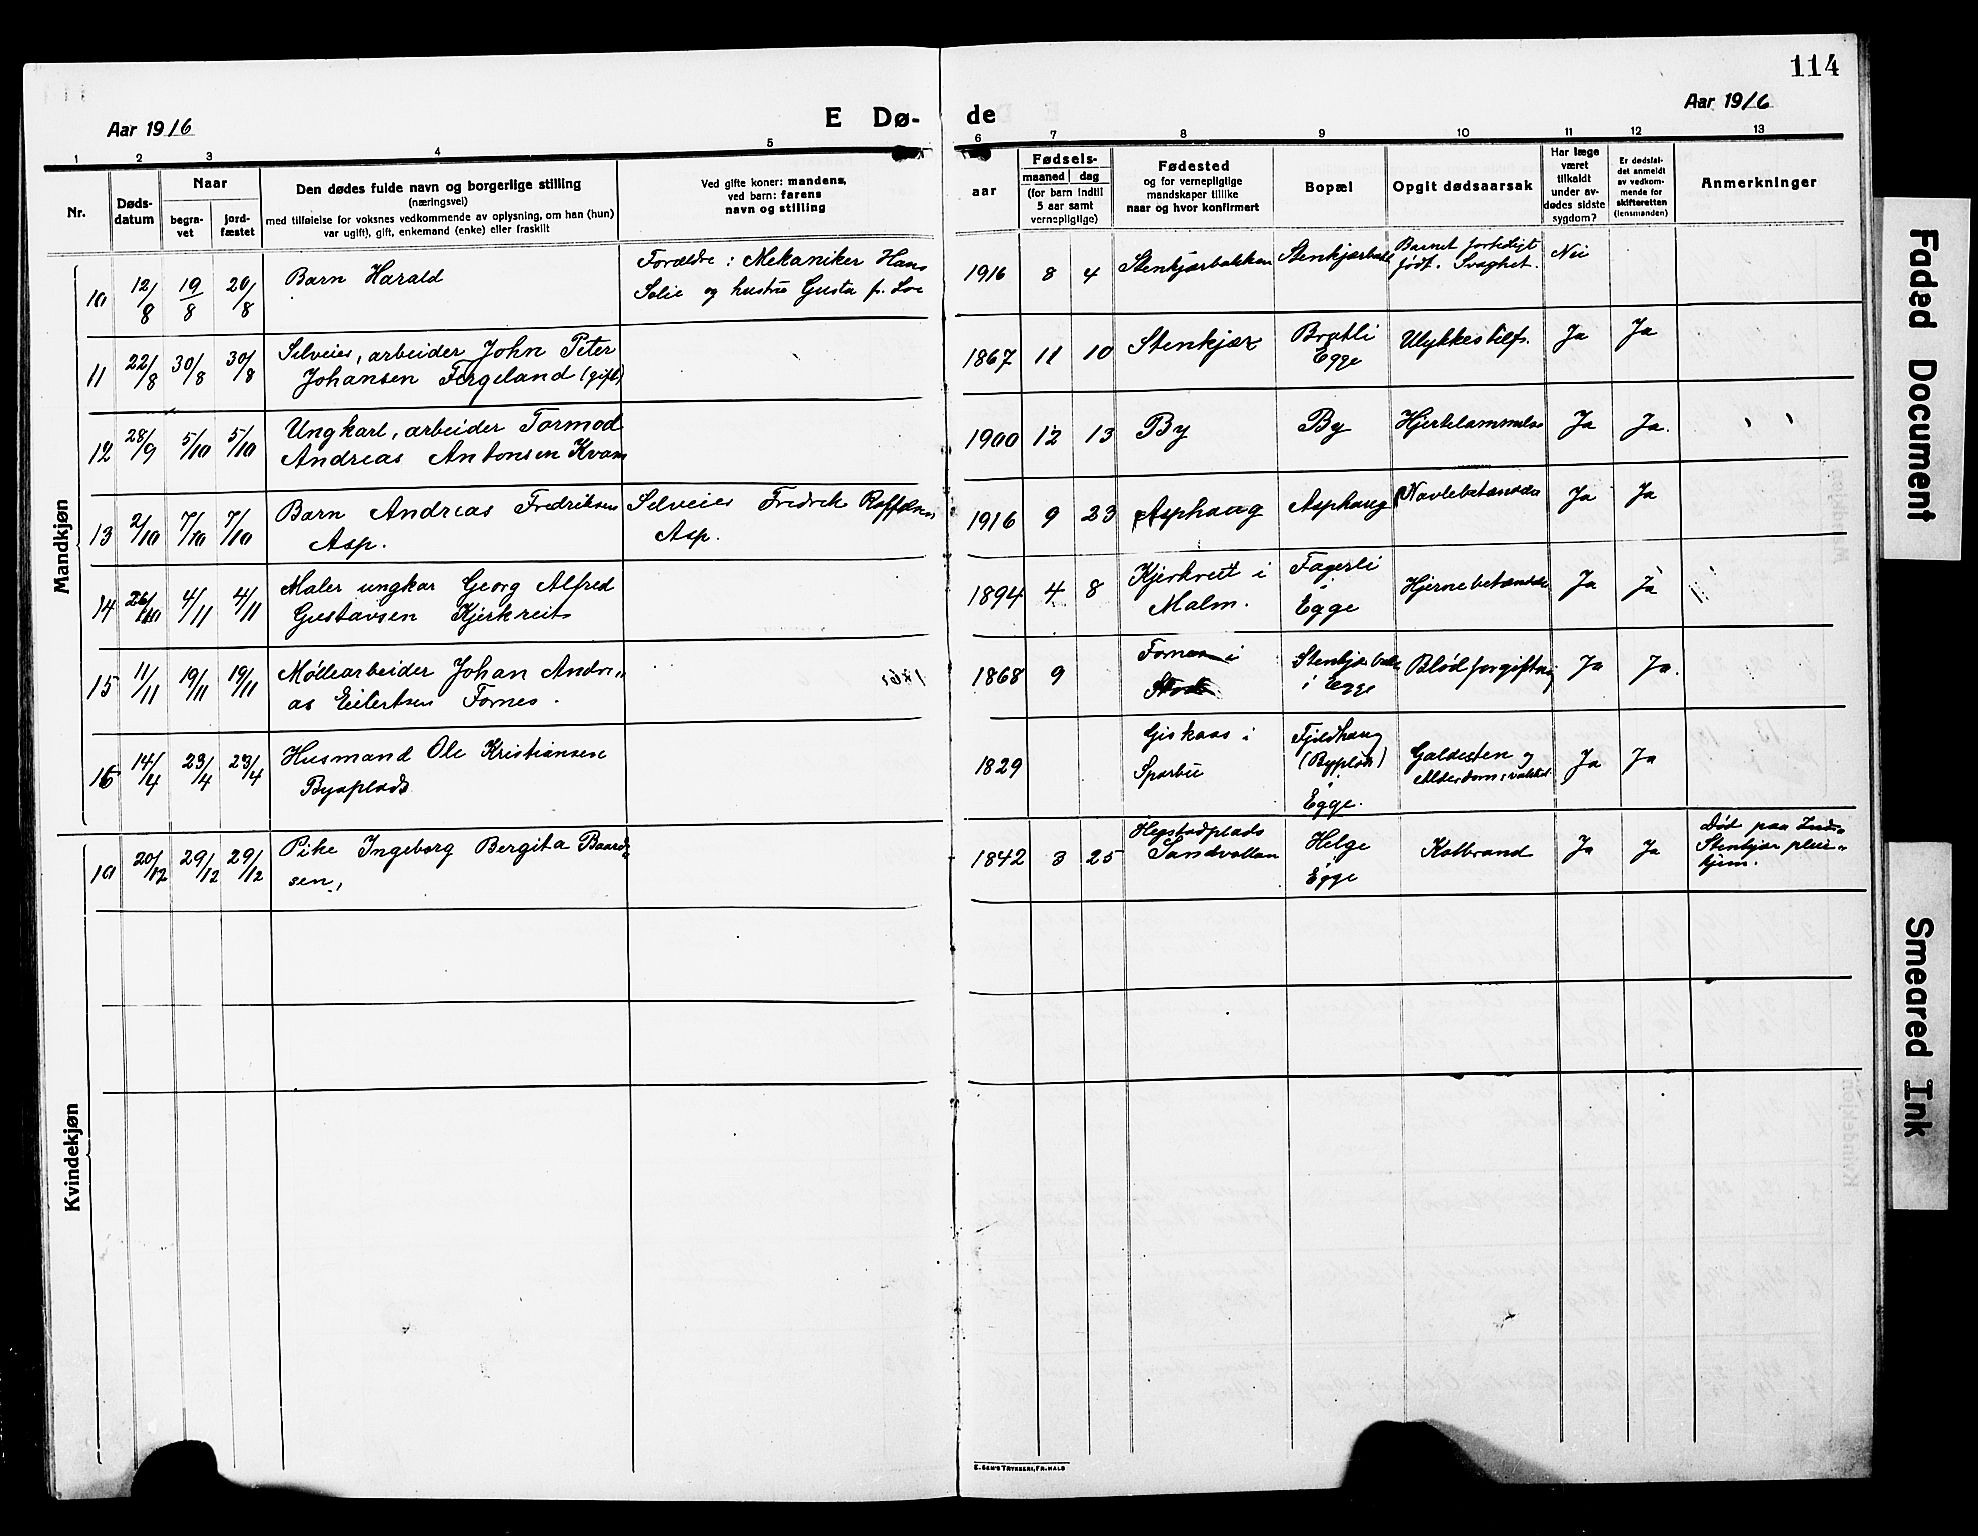 114
Aar 1916
E Dø-
de
Aar 1916
1 2 3 4 5 6 7 8 9 10 11 12 13
Nr.
Døds-
datum
Naar
begra-
vet
jord-
fæstet
Den dødes fulde navn og borgerlige stilling
(næringsvei)
med tilføielse for voksnes vedkommende av oplysning, om han (hun)
var ugift, gift, enkemand (enke) eller fraskilt
Ved gifte koner: mandens,
ved barn: farens
navn og stilling
aar
Fødsels-
maaned dag
(for barn indtil
5 aar samt
vernepligtige)
Fødested
og for vernepligtige
mandskaper tillike
naar og hvor konfirmert
Bopæl
Opgit dødsaarsak
Har læge
været
tilkaldt
under av-
dødes sidste
sygdom?
Er dødsfal-
det anmeldt
av vedkom-
mende for
skifteretten
(lensmanden)
Anmerkninger
Mandkjøn
10 12/8 19/8 20/8 Barn Harald
Forældre: Mekaniker Hans
Selie og hustru Gusta f. Loe
1916 8 4 Stenkjærbakken Stenkjærbakk
Barnet fortidligt
født. Svaghet.
Nei
11 22/8 30/8 30/8 Selveier, arbeider John Peter
Johansen Fergeland (gift)
1867 11 10 Stenkjær
Brattli
Egge
Ulykkestilf. Ja Ja
12 28/9 5/10 5/10 Ungkarl, arbeider Tormod
Andreas Antonsen Kvam
1900 12 13 By By Hjertelammelse Ja Ja.
13 2/10 7/10 7/10 Barn Andreas Fredriksen
Asp.
Selveier Fredrik
Asp.
1916 9 23 Asphaug Asphaug Navlebetændelse Ja Ja
14 26/10 4/11 4/11 Maler ungkar Georg Alfred
Gustavsen Kjerkreit
1894 4 8 Kjerkreit i
Malm.
Fagerli
i
Egge
Hjernebetændelse Ja Ja
15 11/11 19/11 19/11 Møllearbeider Johan Andre-
as Eilertsen Fornes.
1868 9 Fornes i
Stod
Stenkjærbakk
i Egge
Blodforgiftning Ja Ja.
16 14/4 23/4 23/4 Husmand Ole Kristiansen
Byaplads
1829 Giskaas i
Sparbu
Fjeldhaug
(Byplads)
i
Egge.
Galdesten og
Alderdomssvakhet
Ja Ja
Kvindekjøn
10 20/12 29/12 29/12 Pike Ingeborg Bergita Baard-
sen,
1842 3 25 Hegstadplads
Sandvollan
Helge
i
Egge
Kolbrand Ja Ja
Død paa
Stenkjær pleie-
hjem.
E. SEM'S TRYKKERI, FR.HALD
Faded Document
Smeared Ink